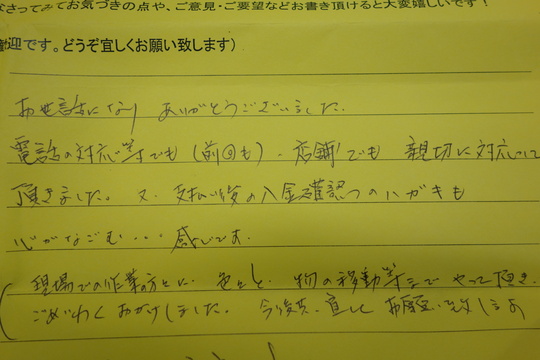 なさってみてお気づきの点や、ご意見・ご要望などお書き頂けると大変嬉しいです!
迎です。どうぞ宜しくお願い致します)
お世話になり ありがとうございました.
電話の対応等でも(前回も)、店舗でも 親切に対応して
頂きました。又、支払い後の入金確認のハガキも
心がなごむ・・・感じです.
(現場での作業の方々に、色々と、物の移動等までやって頂き、
ごめいわくおかけしました。 今後共、宜しくお願い致します